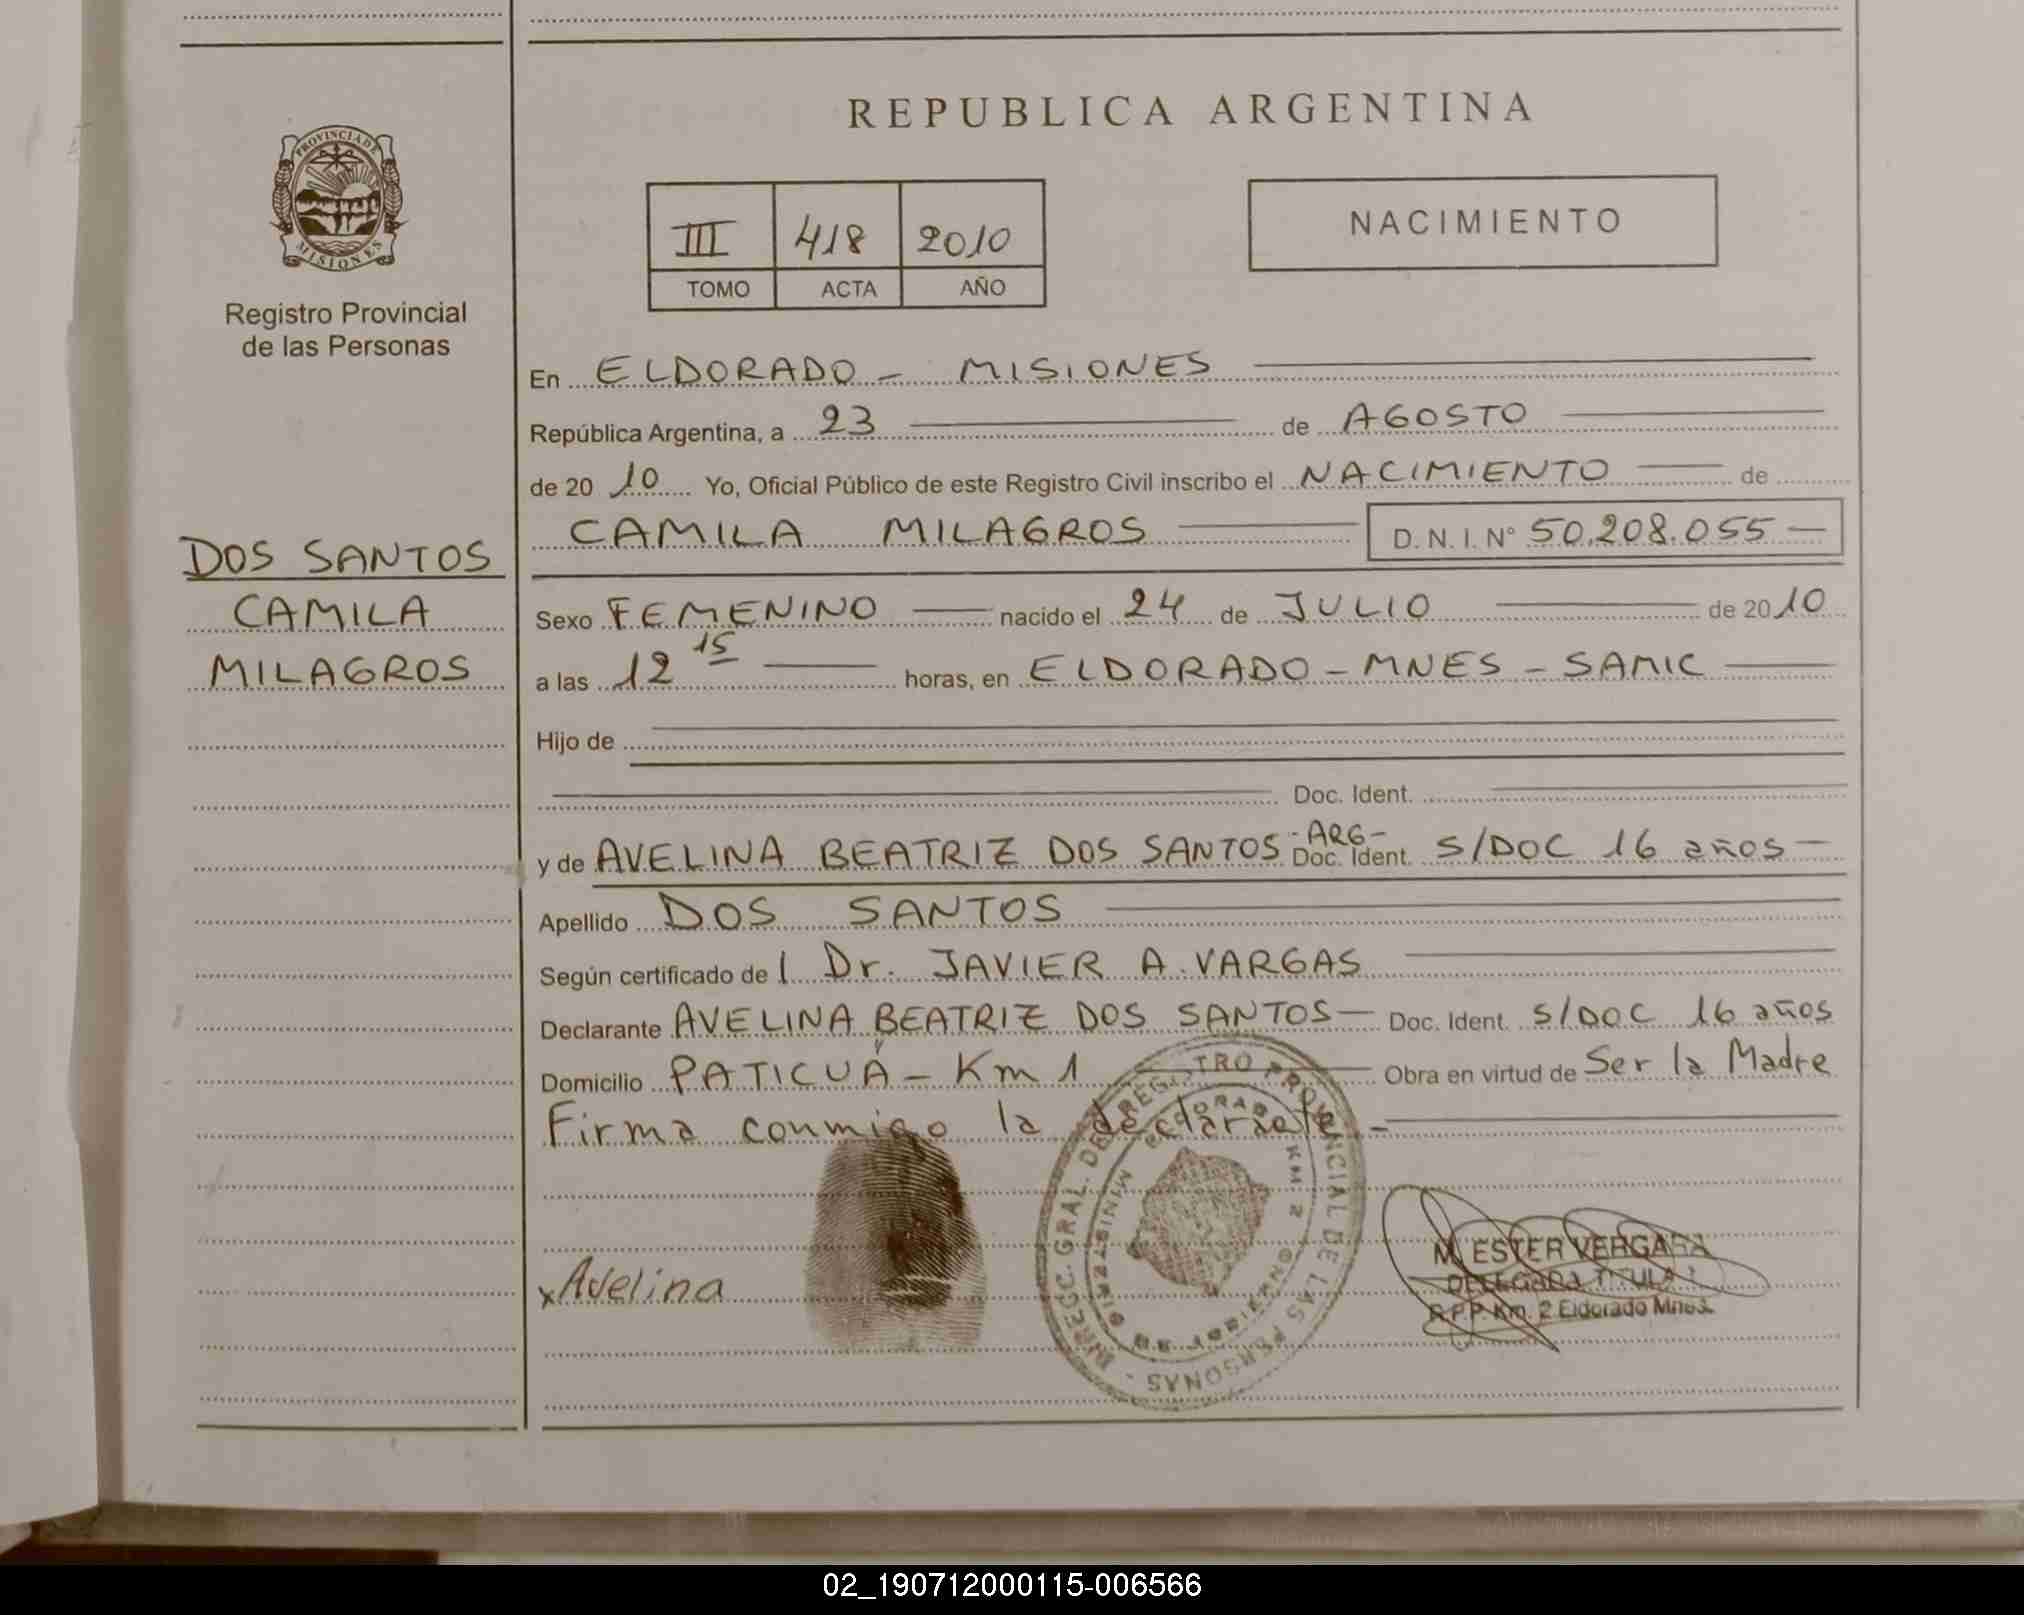 REPUBLICA ARGENTINA
PROVINCIA DE MISIONES
Registro Provincial
de las Personas
III 418 2010
TOMO ACTA AÑO
NACIMIENTO
DOS SANTOS
CAMILA
MILAGROS
En ELDORADO - MISIONES
República Argentina, a 23 de AGOSTO
de 2010 Yo, Oficial Público de este Registro Civil inscribo el NACIMIENTO de
CAMILA MILAGROS D.N.I. Nº 50.208.055
Sexo FEMENINO nacido el 24 de JULIO de 2010
a las 12 15 horas, en ELDORADO - MNES - SAMIC
Hijo de
Doc. Ident.
y de AVELINA BEATRIZ DOS SANTOS -ARG- Doc. Ident. S/DOC 16 años
Apellido DOS SANTOS
Según certificado de l Dr. JAVIER A. VARGAS
Declarante AVELINA BEATRIZ DOS SANTOS Doc. Ident. S/DOC 16 años
Domicilio PATICUÁ - Km 1 Obra en virtud de Ser la Madre
Firma conmigo la declarante -
x Avelina
DIRECC. GRAL. DE REGISTRO PROVINCIAL DE LAS PERSONAS
MINISTERIO DE GOBIERNO
ELDORADO KM 2
M. ESTER VERGARA
DELEGADA TITULAR
R.P.P. Km. 2 Eldorado Mnes.
02_190712000115-006566